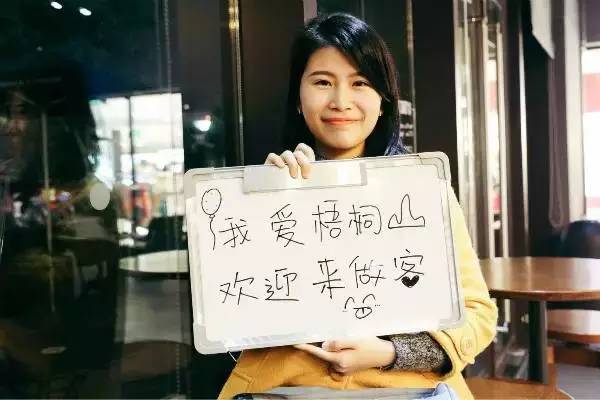 我爱梧桐
欢迎来做客